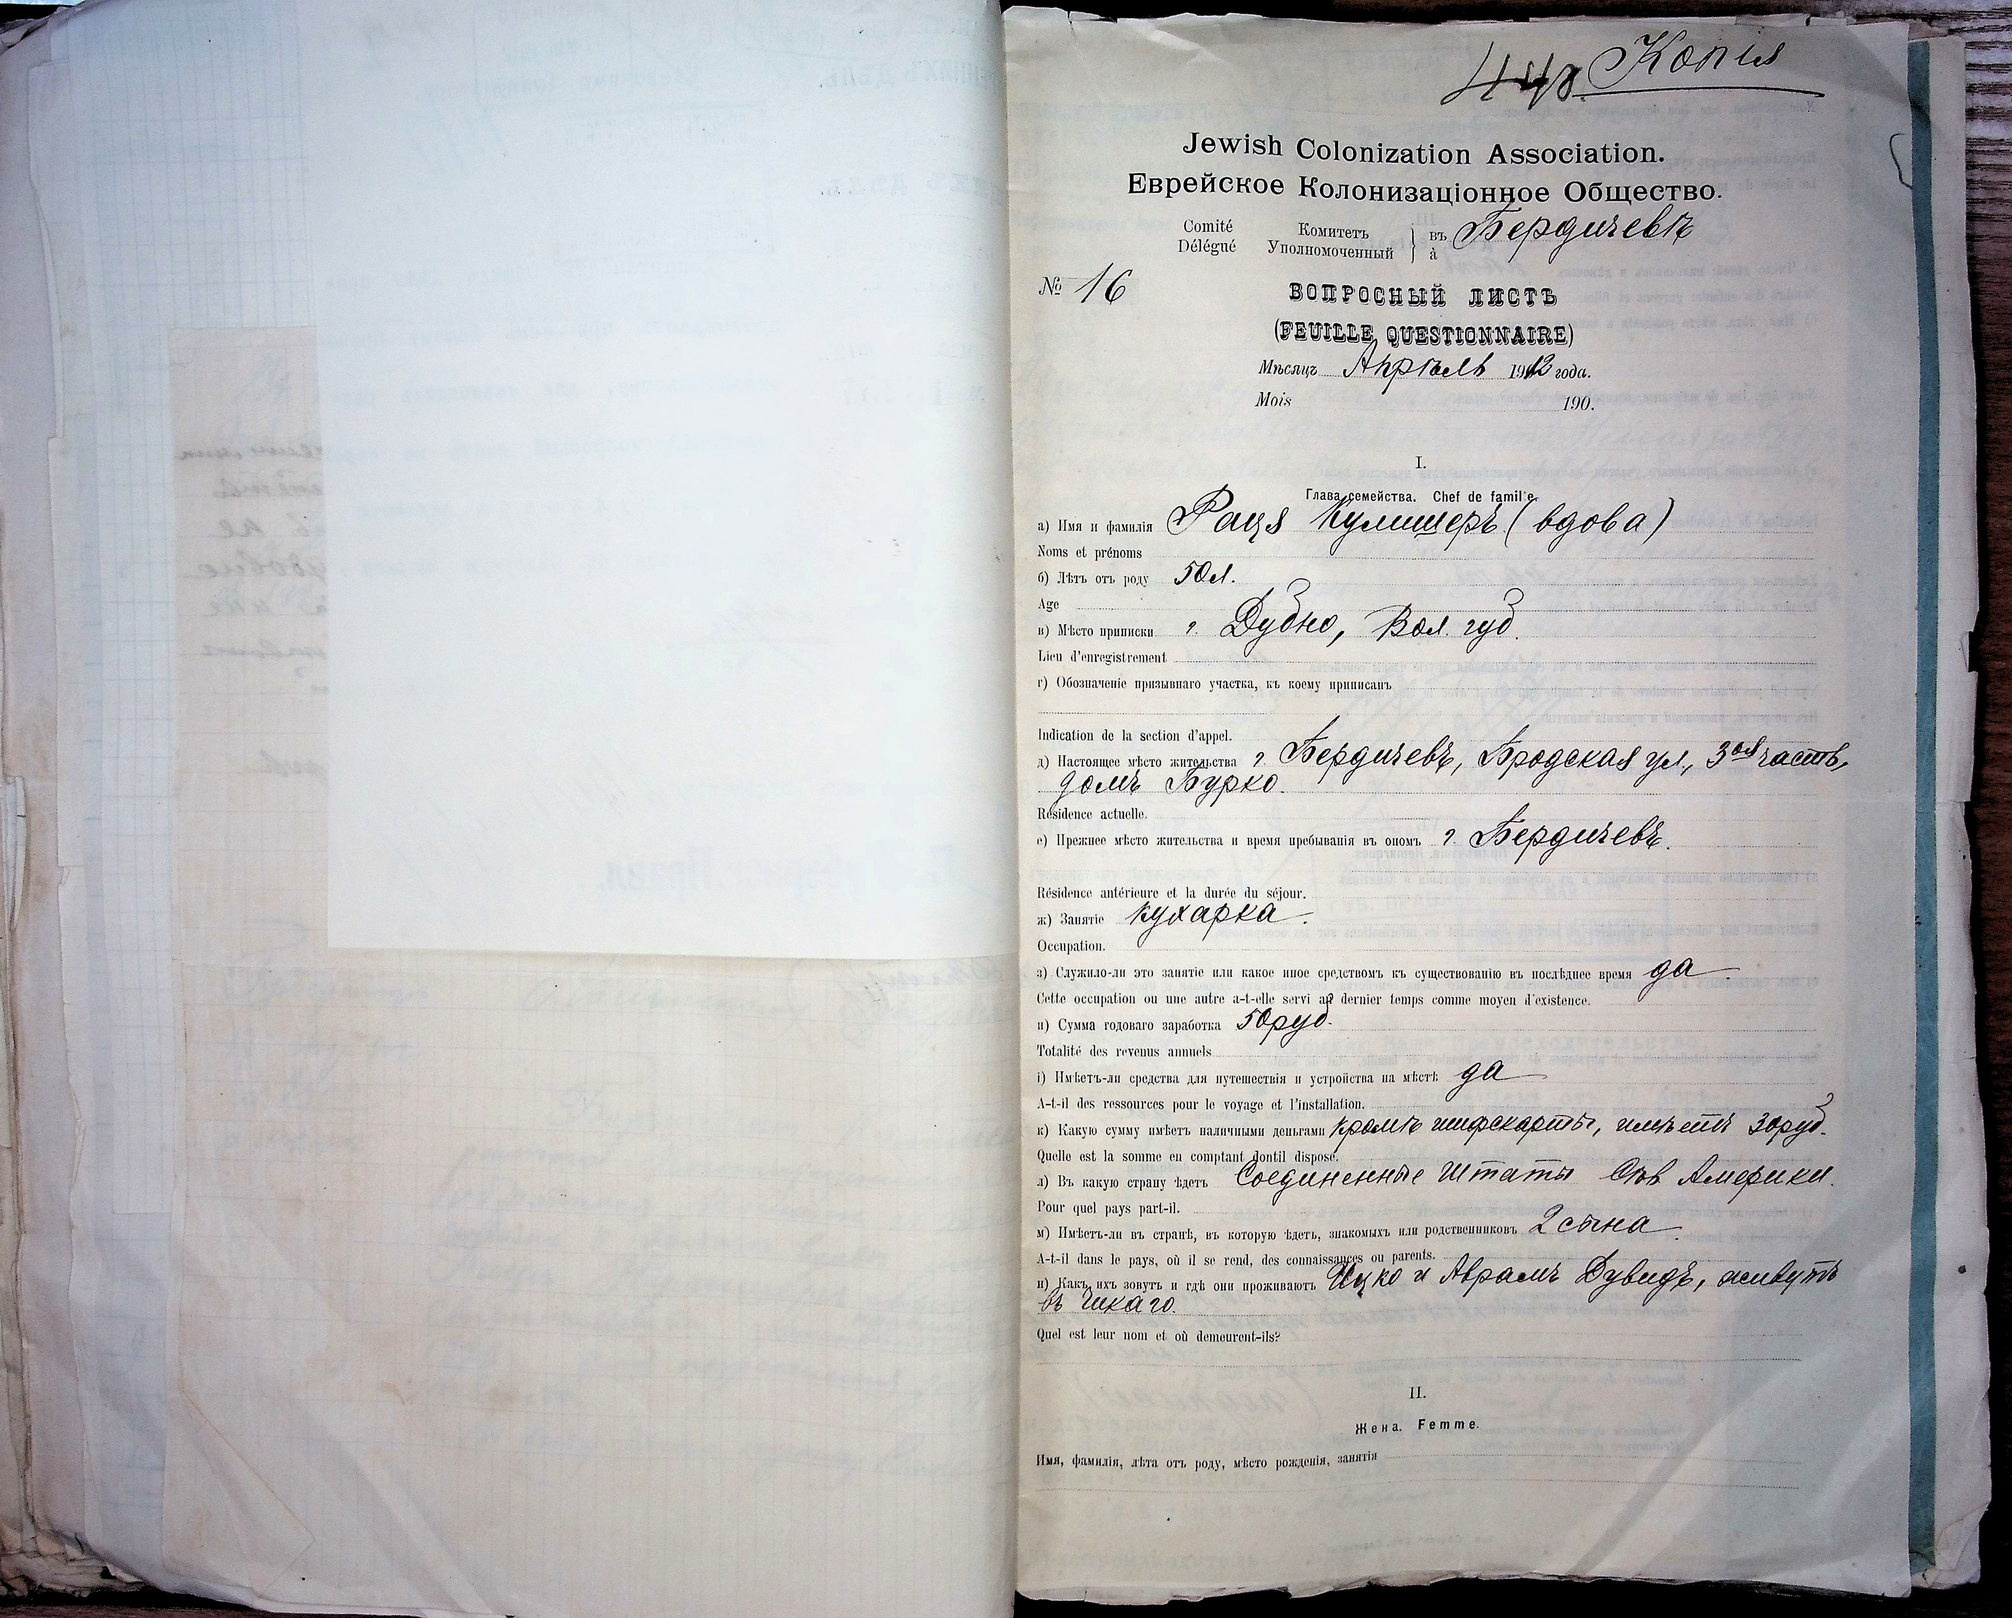 Копія
Jewish Colonization Association.
Еврейское Колонизаціонное Общество.
Comité Комитетъ въ Бердичевѣ
Délégué Уполномоченный à
№ 16
ВОПРОСНЫЙ ЛИСТЪ
(FEUILLE QUESTIONNAIRE)
Мѣсяцъ Апрѣль 1912 года.
Mois 190.
I.
Глава семейства. Chef de famille.
а) Имя и фамилія Рация Кулишеръ (вдова)
Noms et prénoms
б) Лѣтъ отъ роду 50 л.
Age
в) Мѣсто приписки г. Дубно, Вол. губ.
Lieu d'enregistrement
г) Обозначеніе призывнаго участка, къ коему приписанъ
Indication de la section d'appel.
д) Настоящее мѣсто жительства г. Бердичевъ, Бродская ул., 3ая часть,
домъ Бурко.
Résidence actuelle.
е) Прежнее мѣсто жительства и время пребыванія въ ономъ г. Бердичевъ.
Résidence antérieure et la durée du séjour.
ж) Занятіе кухарка.
Occupation.
з) Служило-ли это занятіе или какое иное средствомъ къ существованію въ послѣднее время да.
Cette occupation ou une autre a-t-elle servi au dernier temps comme moyen d'existence.
и) Сумма годоваго заработка 50 руб.
Totalité des revenus annuels
і) Имѣетъ-ли средства для путешествія и устройства на мѣстѣ да
A-t-il des ressources pour le voyage et l'installation.
к) Какую сумму имѣетъ наличными деньгами кромѣ шифскарты, имѣетъ 30 руб.
Quelle est la somme en comptant dontil dispose.
л) Въ какую страну ѣдетъ Соединенные Штаты Сѣв Америки.
Pour quel pays part-il.
м) Имѣетъ-ли въ странѣ, въ которую ѣдетъ, знакомыхъ или родственниковъ 2 сына.
A-t-il dans le pays, où il se rend, des connaissances ou parents.
н) Какъ ихъ зовутъ и гдѣ они проживаютъ Ицко и Аврамъ Дувидъ, живутъ
въ Чикаго.
Quel est leur nom et où demeurent-ils?
II.
Жена. Femme.
Имя, фамилія, лѣта отъ роду, мѣсто рожденія, занятія